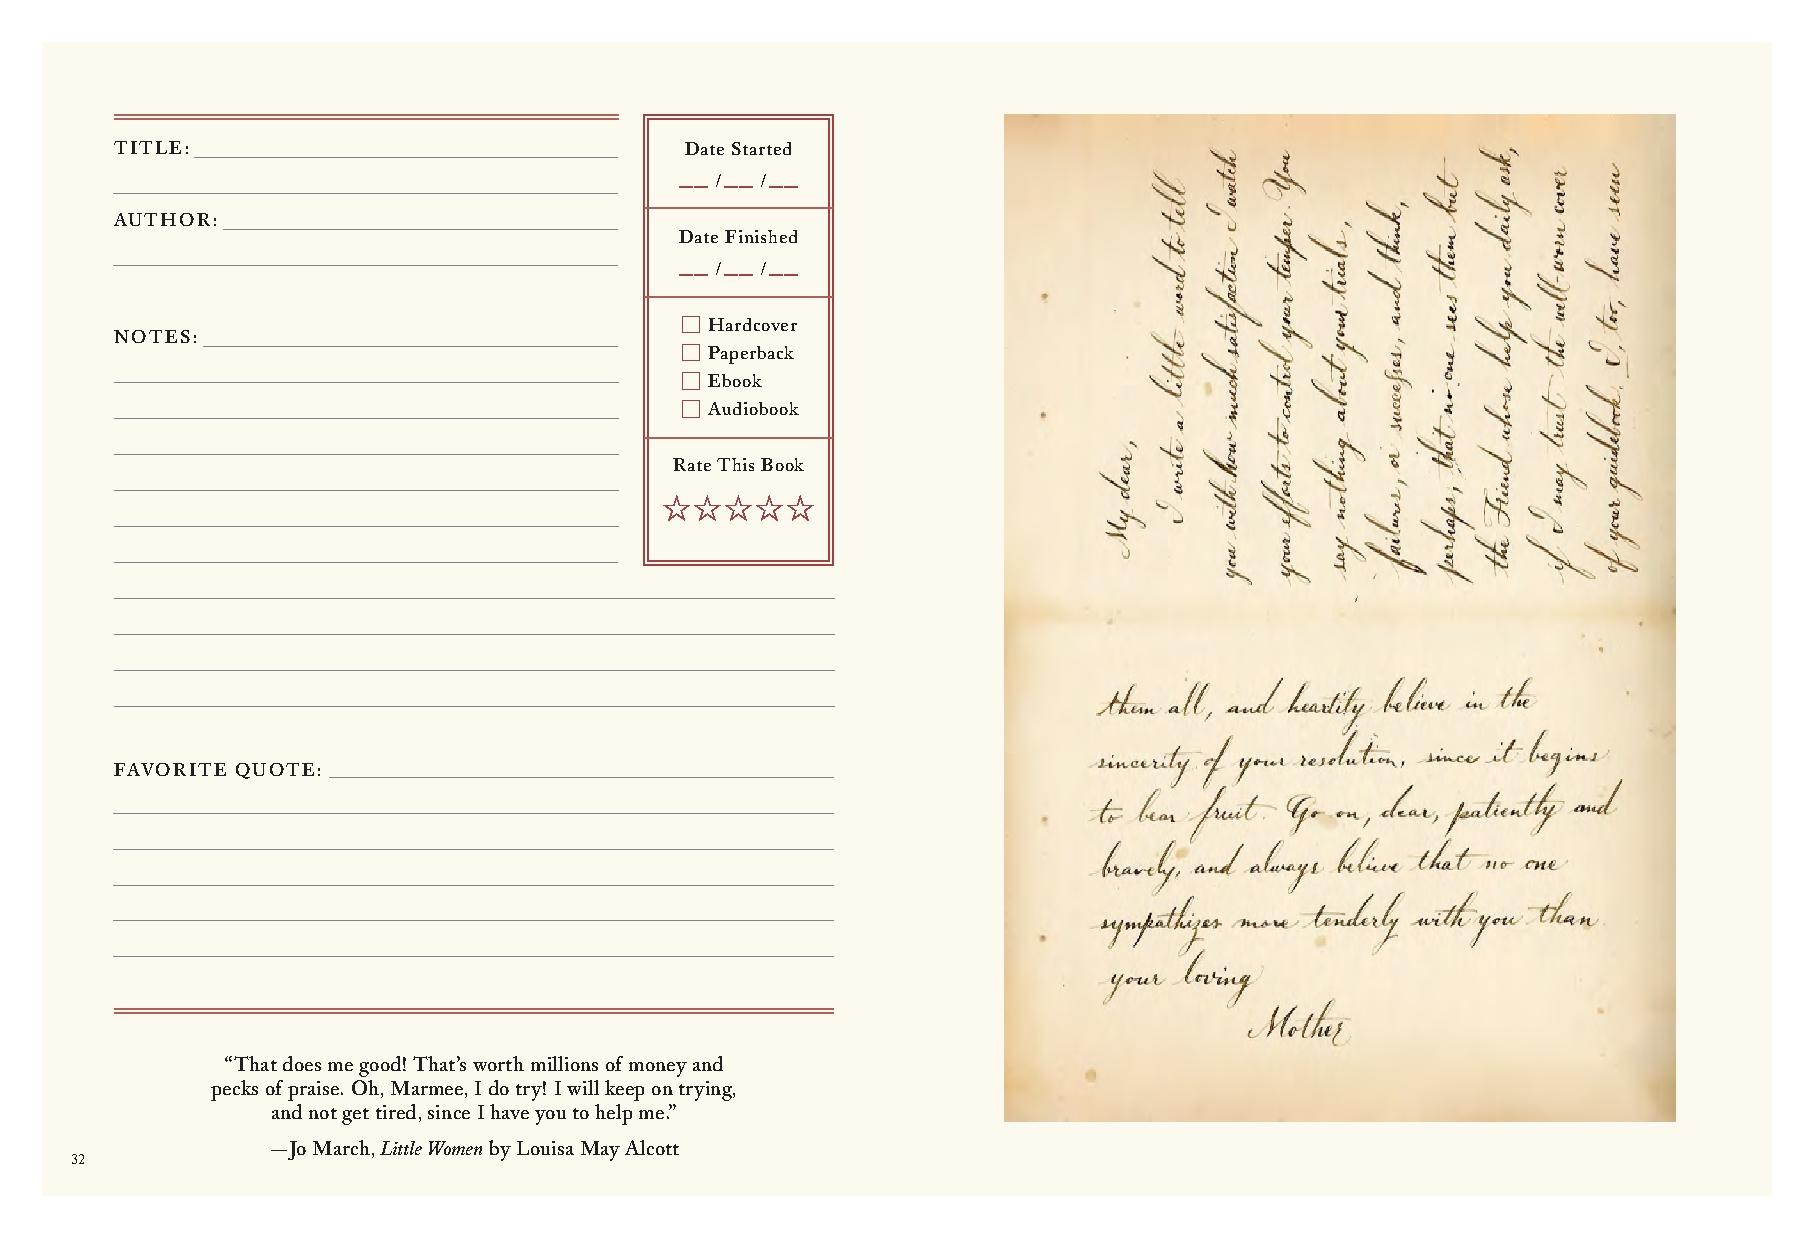 TITLE:
AUTHOR:
NOTES:
Date Started
__ /__ /__
Date Finished
__ /__ /__
Hardcover
Paperback
Ebook
Audiobook
Rate This Book
FAVORITE QUOTE:
“That does me good! That’s worth millions of money and
pecks of praise. Oh, Marmee, I do try! I will keep on trying,
and not get tired, since I have you to help me.”
—Jo March, Little Women by Louisa May Alcott
32
My dear,
I write a little word to tell
you with how much satisfaction I watch
your efforts to control your temper. You
say nothing about your trials,
failures, or successes, and think,
perhaps, that no one sees them but
the Friend whose help you daily ask,
if I may trust the well-worn cover
of your guidebook. I, too, have seen
them all, and heartily believe in the
sincerity of your resolution, since it begins
to bear fruit. Go on, dear, patiently and
bravely, and always believe that no one
sympathizes more tenderly with you than
your loving
Mother